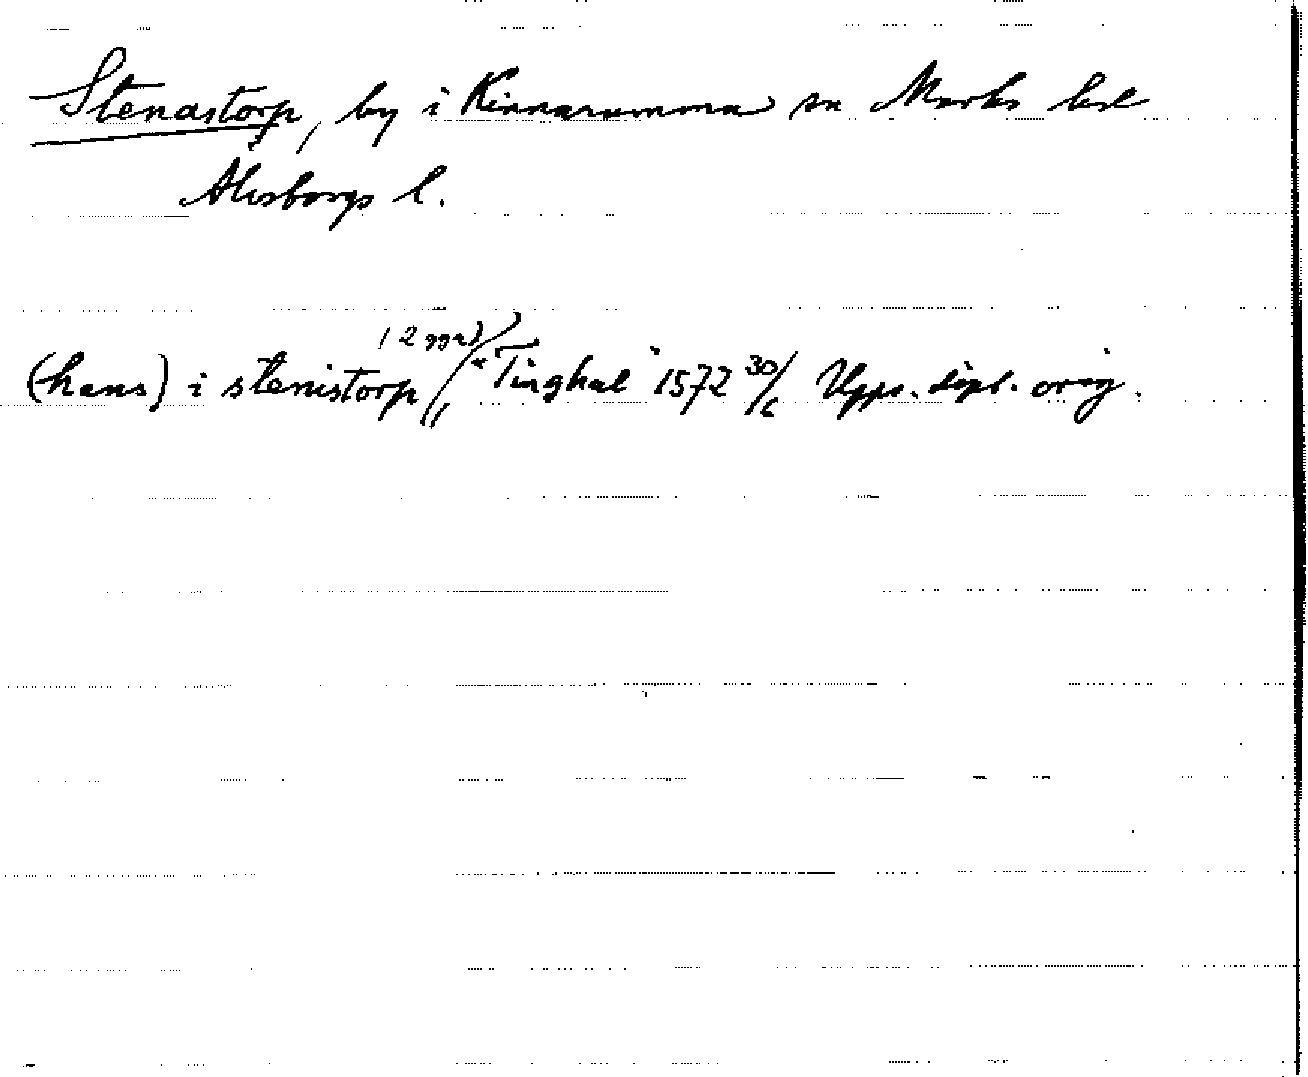 Stenastorp, by i Kinnarumma sn Marks hd
Älvsborgs l.
(2 ggr)
(hans) i stenistorp // "Tinghal" 1572 30/6 Upps. dipl. orig.